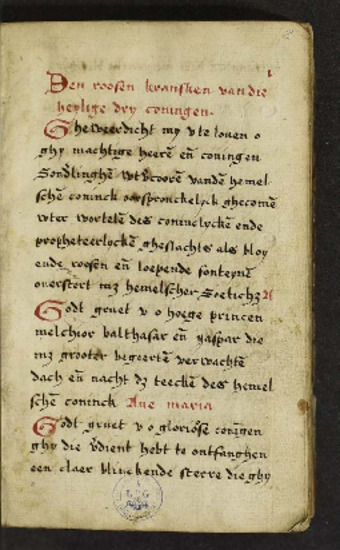 Den roosen kransken van die
heylige dry coningen.
Gheweerdicht my v te louen o
ghy machtige heerē eñ coningen
vandē hemel
schē coninck oorspronckelyck ghecomē
wter wortelē des conincklyckē ende
propheteerlyckē gheslachts als bloy
ende roosen eñ loepende fonteynē
ouerstort mz hemelscher
Godt gruet v o hoege princen
melchior balthasar eñ Jaspar die
mz grooter begeertē verwachtē
dach eñ nacht dz teecke des hemel
schē coninck Aue maria
Godt gruet v o gloriose coningen
ghy die vdient hebt te ontfanghen
een claer blinckende sterre die ghy